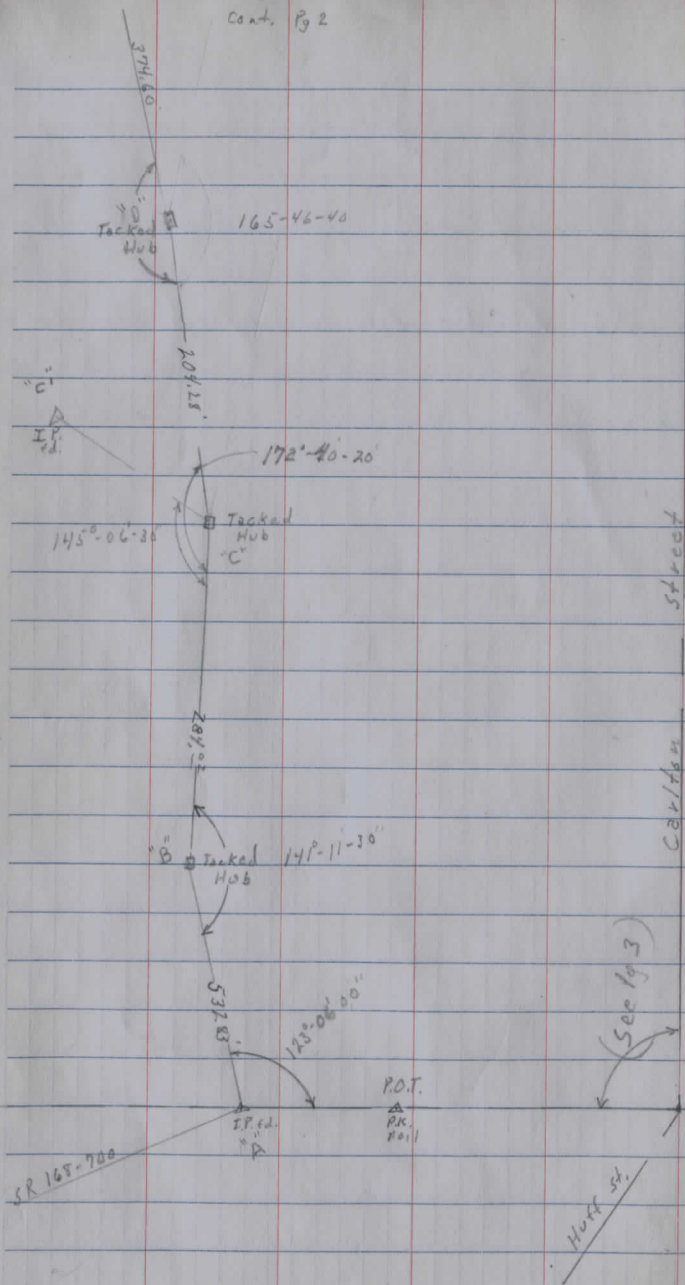 Cont. Pg 2
374.60
"D"
Tacked
Hub
165-46-40
204.28'
"E"
I.P.
fd.
172°-40-20
145°-06-30
Tacked
Hub
"C"
Street
284.02
Carlton
"B"
Tacked
Hub
141°-11-30"
(See Pg 3)
532.83'
123°-06-00"
P.O.T.
I.P. fd.
"A"
P.K.
Nail
SR 168-700
Huff St.